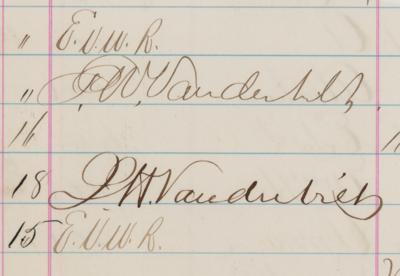 " E. V. W. R.
" J. W. Vanderbilt
16
18 J. H. Vanderbilt
15 E. V. W. R.